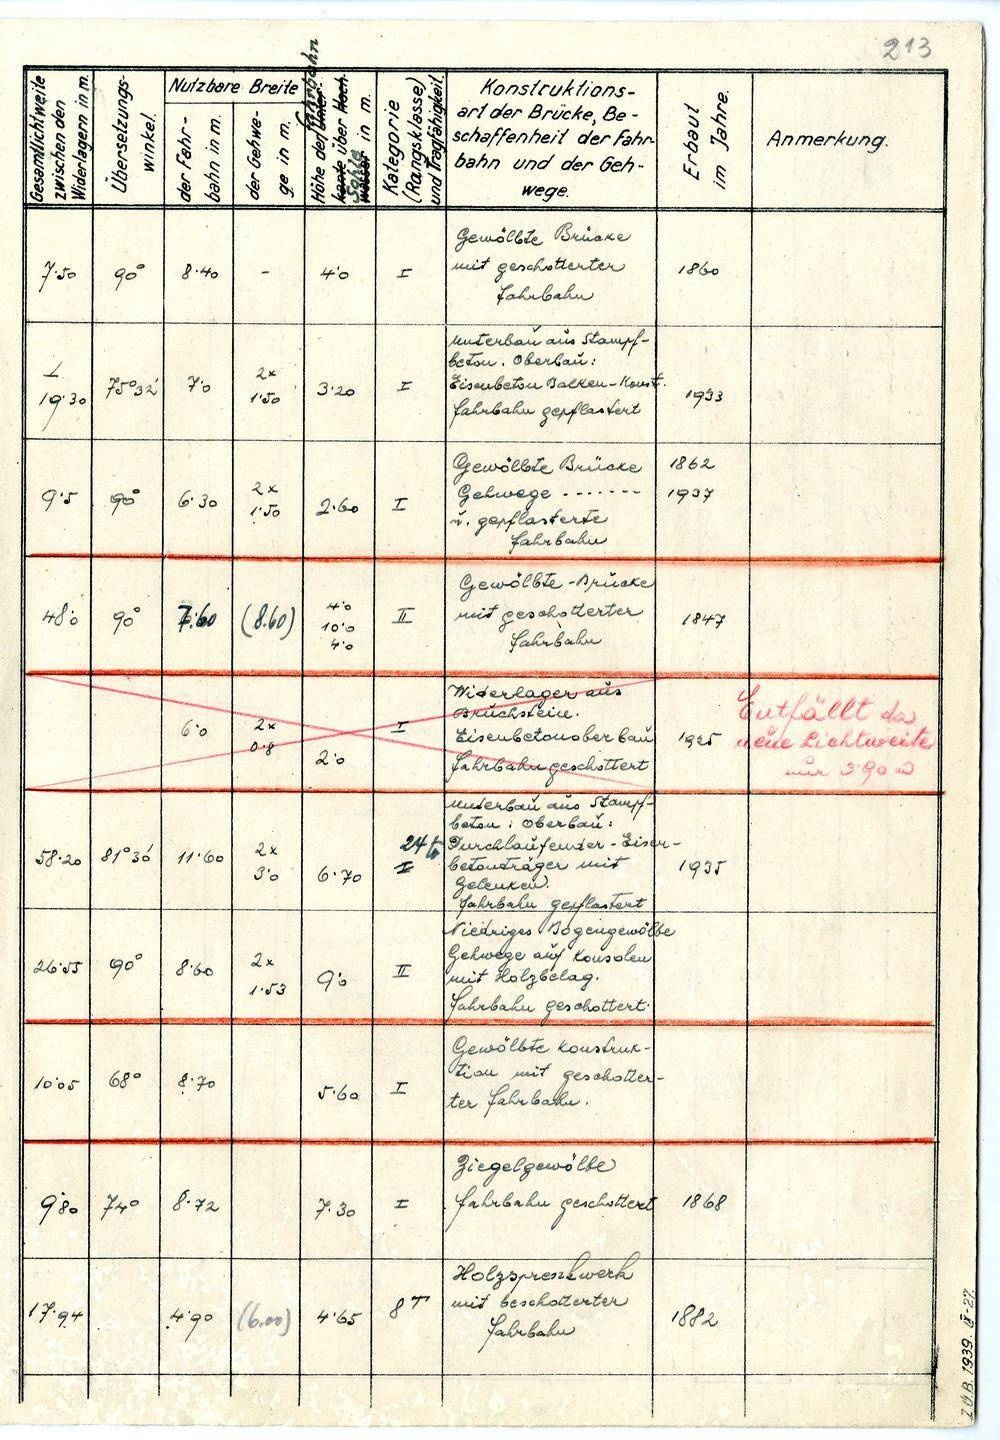 213
Gesamtlichtweite
zwischen den
Widerlagern in m.
Übersetzungs-
winkel.
Nutzbare Breite
der Fahr-
bahn in m.
der Gehwe-
ge in m.
Fahrbahn
Höhe der
kante über Hoch-
Sohle
wasser in m.
Kategorie
(Rangsklasse)
und Tragfähigkeit.
Konstruktions-
art der Brücke, Be-
schaffenheit der Fahr-
bahn und der Geh-
wege.
Erbaut
im Jahre.
Anmerkung.
7·50 90° 8·40 - 4·0 I
Gewölbte Brücke
mit geschotterter
Fahrbahn
1860
⊥
19·30 75°32' 7·0
2×
1·50
3·20 I
Unterbau aus Stampf-
beton. Oberbau:
Eisenbeton Balken-Konst.
Fahrbahn gepflastert
1933
9·5 90° 6·30
2×
1·50
2·60 I
Gewölbte Brücke 1862
Gehwege ------- 1937
u. gepflasterte
Fahrbahn
48·0 90° 7·60 (8.60)
4·0
10·0
4·0
II
Gewölbte-Brücke
mit geschotterter
Fahrbahn
1847
6·0
2×
0·8
2·0 I
Widerlager aus
Bruchstein.
Eisenbetonoberbau
Fahrbahn geschottert
1925
Entfällt da
neue Lichtweite
nur 3·90 m
58·20 81°30' 11·60
2×
3·0
6·70
24 t
I
Unterbau aus Stampf-
beton; Oberbau:
Durchlaufender-Eisen-
betonträger mit
Gelenken.
Fahrbahn gepflastert
1935
26·55 90° 8·60
2×
1·53
9·0 II
Niedriges Bogengewölbe
Gehwege auf Konsolen
mit Holzbelag.
Fahrbahn geschottert.
10·05 68° 8·70 5·60 I
Gewölbte Konstruk-
tion mit geschotter-
ter Fahrbahn.
9·80 74° 8·72 7·30 I
Ziegelgewölbe
Fahrbahn geschottert
1868
17·94 4·90 (6.00) 4·65 8 T
Holzsprengwerk
mit beschotterter
Fahrbahn
1882
Z.Ü.B. 1939. II-27.